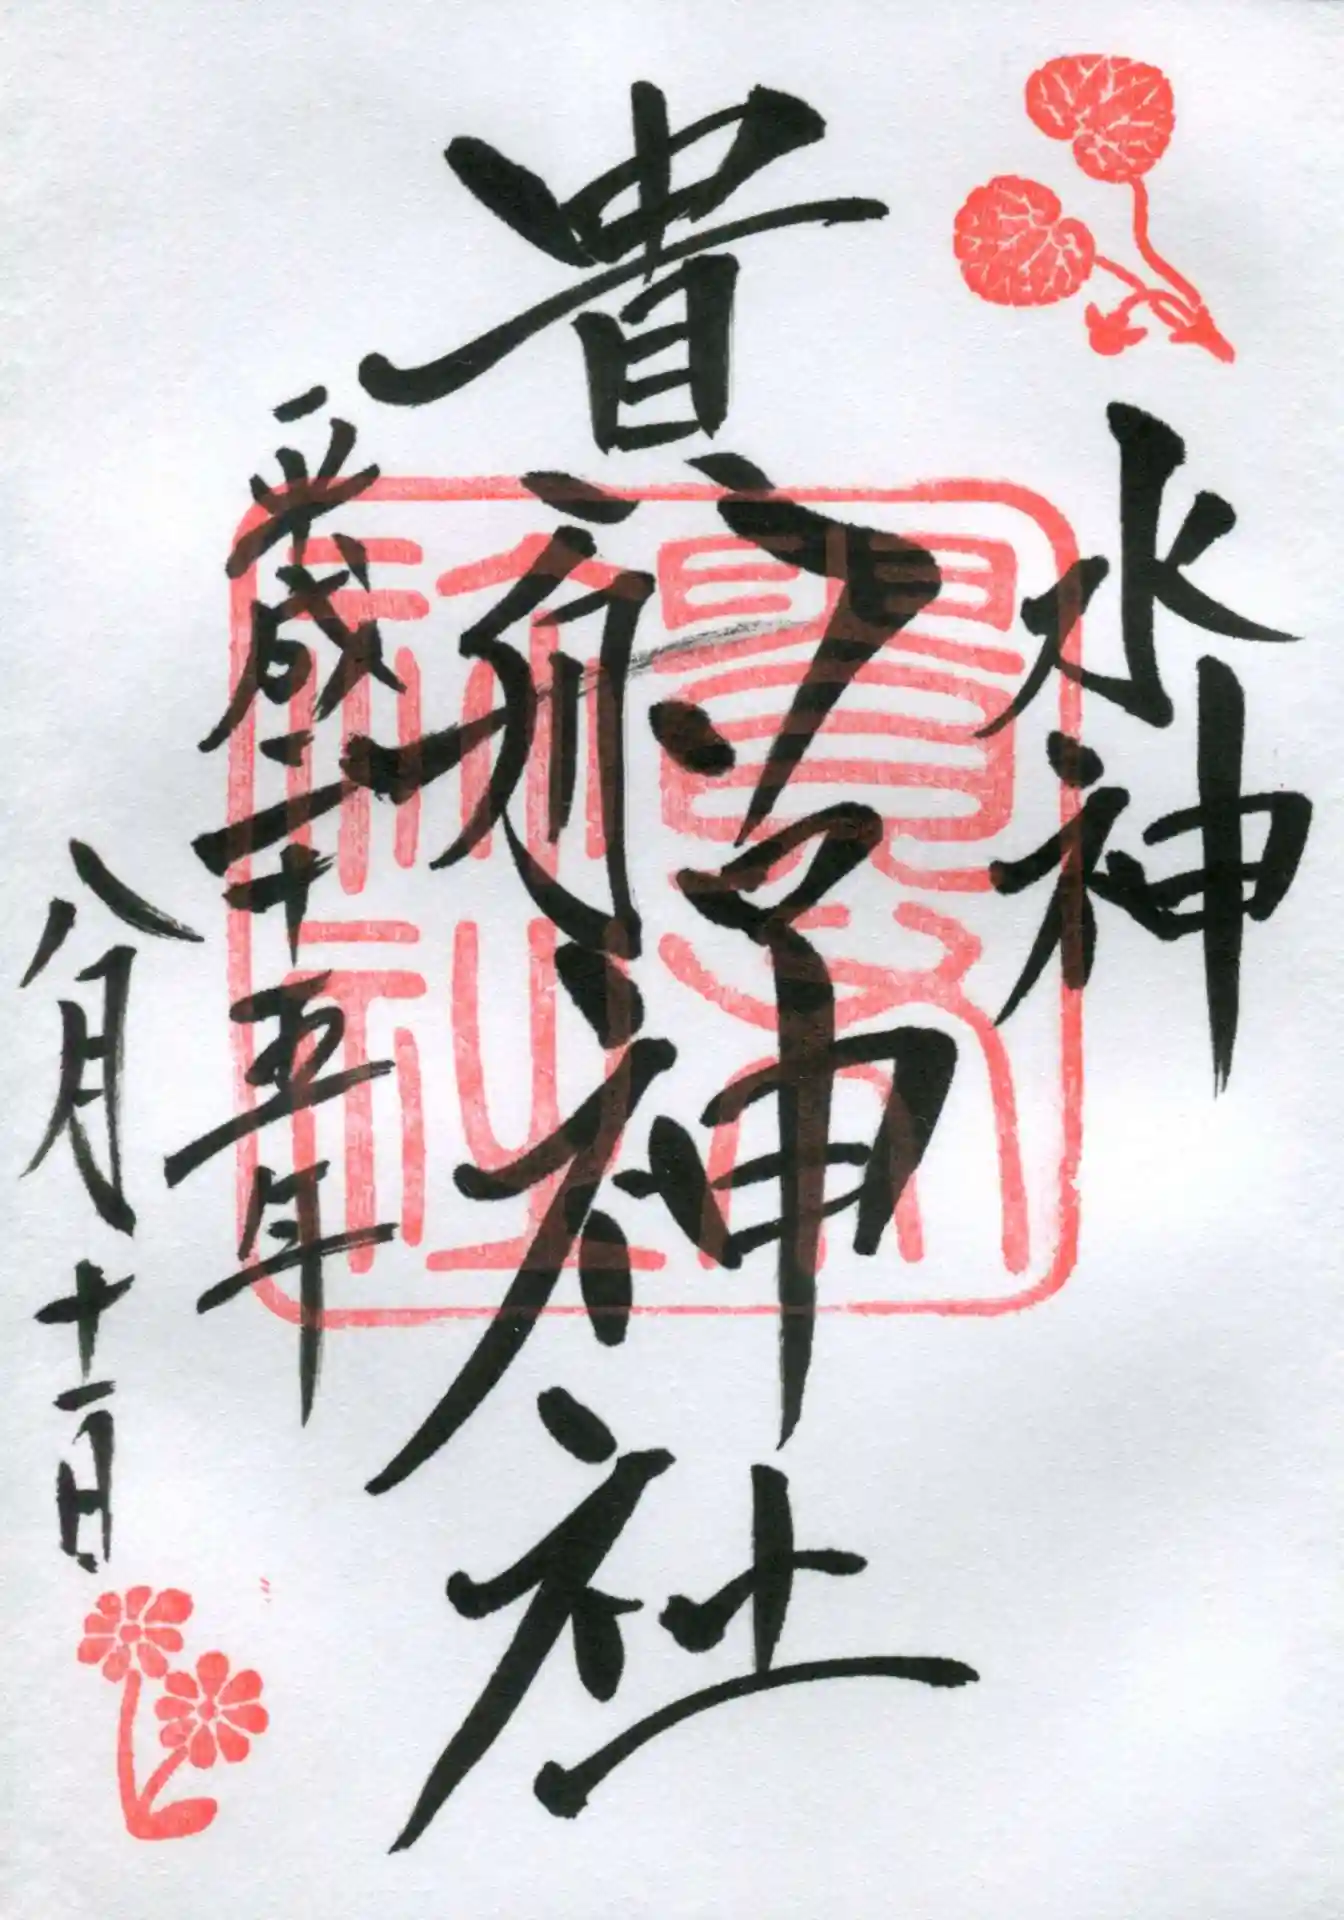 水神
貴船神社
平成二十五年
八月十一日
貴布
祢社